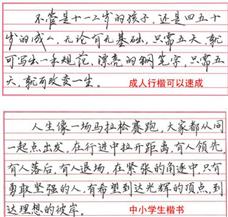 不管是十一二岁的孩子,还是四五十
岁的成人,无论有无基础,只需五天,就
可写出一手规范,漂亮的钢笔字,只需五
天,就可改变一生。
成人行楷可以速成
人生像一场马拉松赛跑,大家都从同
一起点出发,在行进中拉开距离,有人领先,
有人落后,有人退场,在紧张的角逐中,只有
勇敢坚强的人,有希望到达光辉的顶点,到
达理想的彼岸。
中小学生楷书